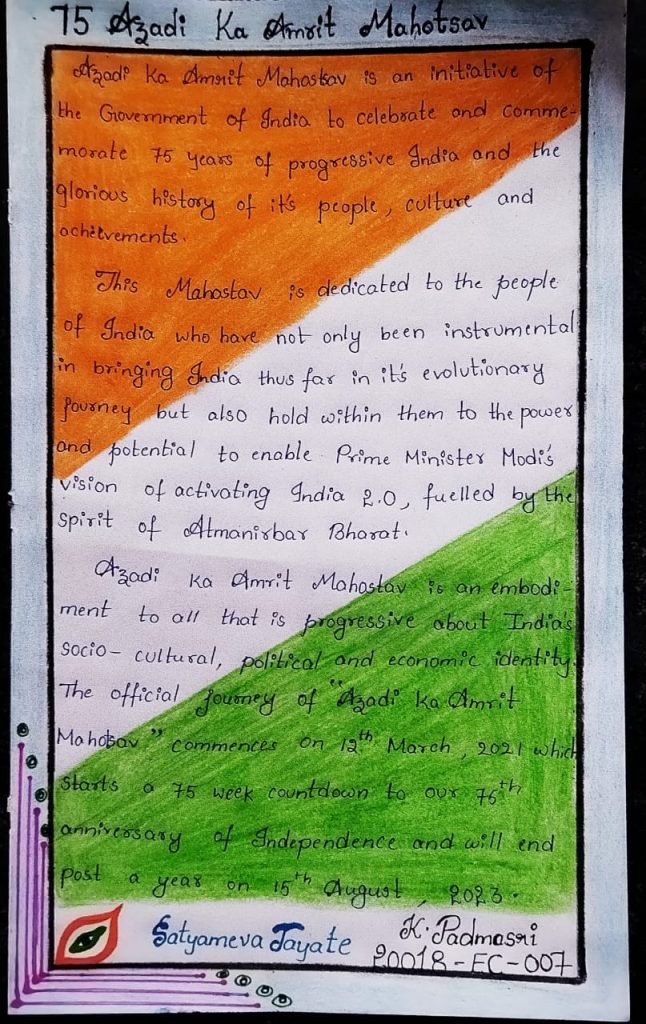 75 Azadi Ka Amrit Mahotsav
Azadi Ka Amrit Mahostav is an initiative of
the Government of India to celebrate and comme-
morate 75 years of progressive India and the
glorious history of it's people, culture and
achievements.
This Mahostav is dedicated to the people
of India who have not only been instrumental
in bringing India thus far in it's evolutionary
journey but also hold within them to the power
and potential to enable Prime Minister Modi's
vision of activating India 2.0, fuelled by the
spirit of Atmanirbar Bharat.
Azadi Ka Amrit Mahostav is an embodi-
ment to all that is progressive about India's
socio-cultural, political and economic identity.
The official journey of "Azadi Ka Amrit
Mahotsav" commences on 12th March, 2021 which
starts a 75 week countdown to our 76th
anniversary of Independence and will end
post a year on 15th August, 2023.
Satyameva Jayate
K. Padmasri
20018-EC-007